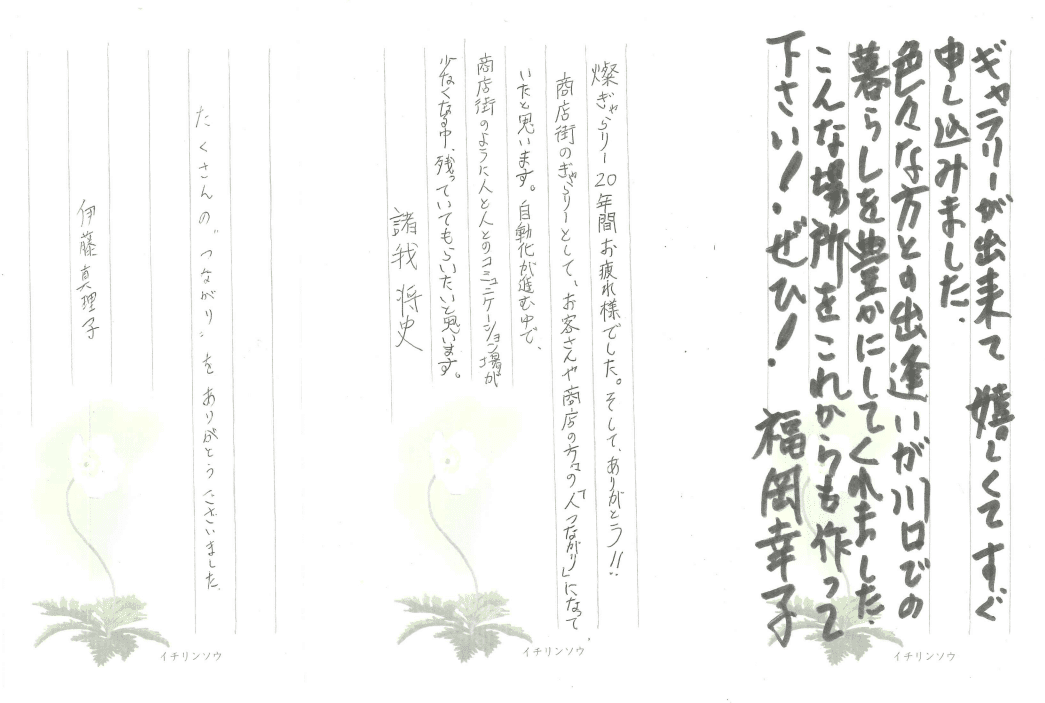 ギャラリーが出来て 嬉しくてすぐ
申し込みました.
色々な方との出逢いが川口での
暮らしを豊かにしてくれました.
こんな場所をこれからも作って
下さい！ぜひ！
福岡幸子
イチリンソウ
燦ぎゃらりー20年間お疲れ様でした。そして、ありがとう!!
商店街のぎゃらりーとして、お客さんや商店の方々の「人つながり」になって
いたと思います。自動化が進む中で、
商店街のように人と人とのコミュニケーション場が
少なくなる中、残っていてもらいたいと思います。
諸我 将史
イチリンソウ
たくさんの"つながり"を ありがとうございました.
伊藤真理子
イチリンソウ